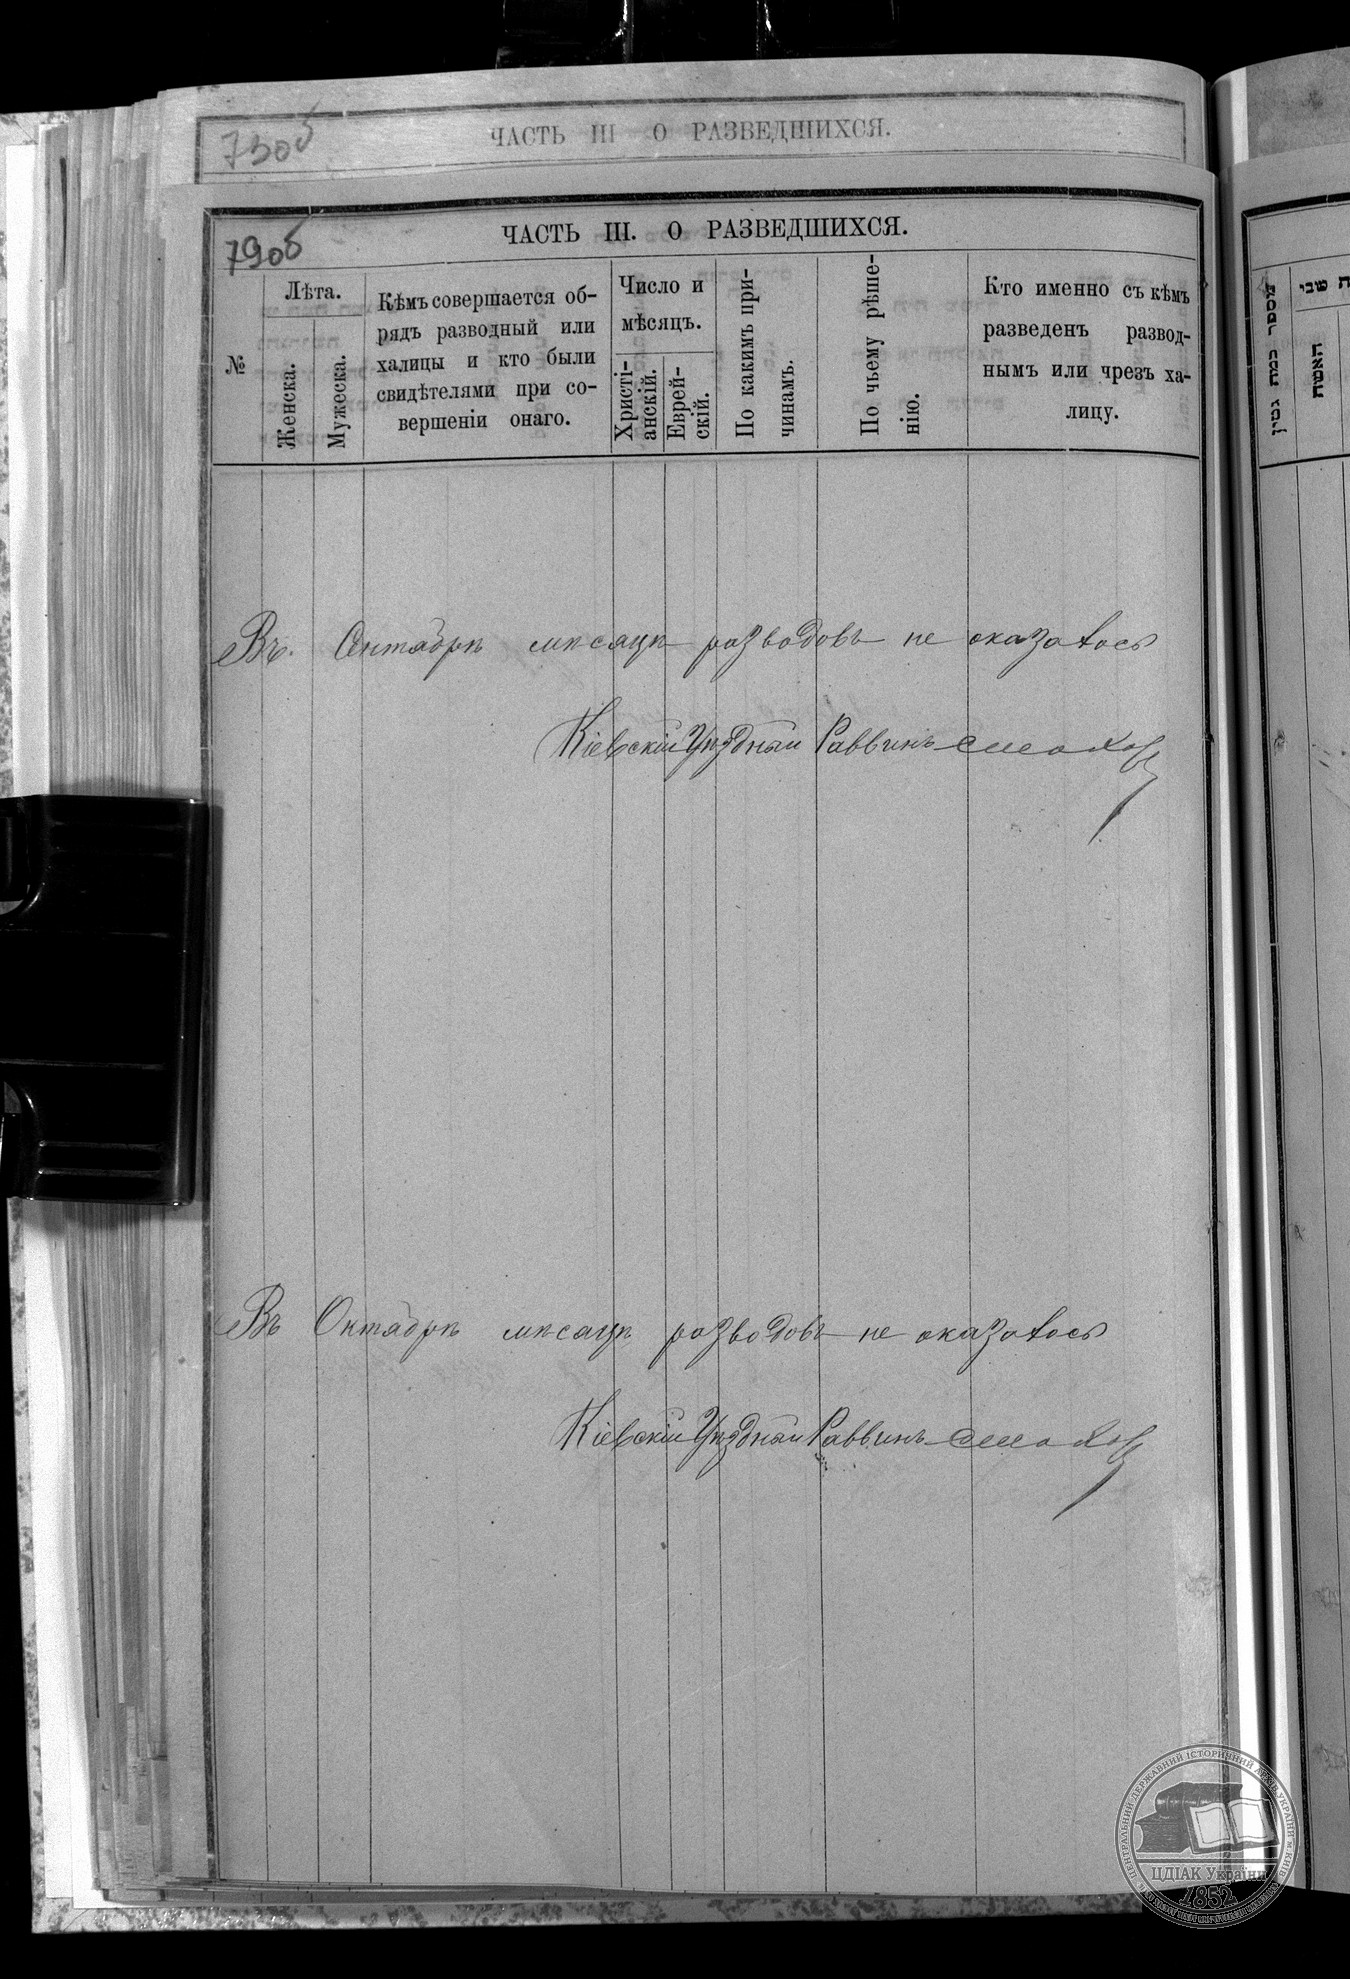 730б
ЧАСТЬ III О РАЗВЕДШИХСЯ.
790б
ЧАСТЬ III. О РАЗВЕДШИХСЯ.
№
Лѣта.
Женска.
Мужеска.
Кѣмъ совершается об-
рядъ разводный или
халицы и кто были
свидѣтелями при со-
вершеніи онаго.
Число и
мѣсяцъ.
Христі-
анскій.
Еврей-
скій.
По какимъ при-
чинамъ.
По чьему рѣше-
нію.
Кто именно съ кѣмъ
разведенъ развод-
нымъ или чрезъ ха-
лицу.
Въ Сентябрѣ мѣсяцѣ разводовъ не оказалось
Кіевскій Уѣздный Раввинъ
Въ Октябрѣ мѣсяцѣ разводовъ не оказалось
Кіевскій Уѣздный Раввинъ
מספר כמה גטין
שני
האשה
ЦЕНТРАЛЬНИЙ ДЕРЖАВНИЙ ІСТОРИЧНИЙ АРХІВ УКРАЇНИ м. КИЇВ
ЦДІАК України
1852